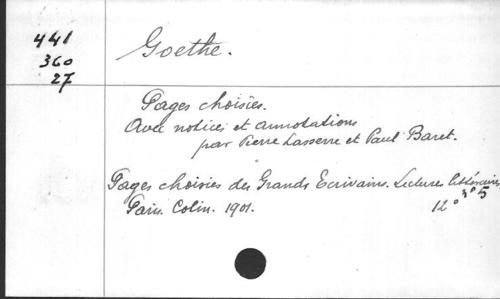 441
360
27
Goethe.
Pages choisies.
Avec notices et annotations
par Pierre Lasserre et Paul Baret.
Pages choisies des Grands Ecrivains. Lectures littéraires
n° 5
Paris. Colin. 1901. 12°